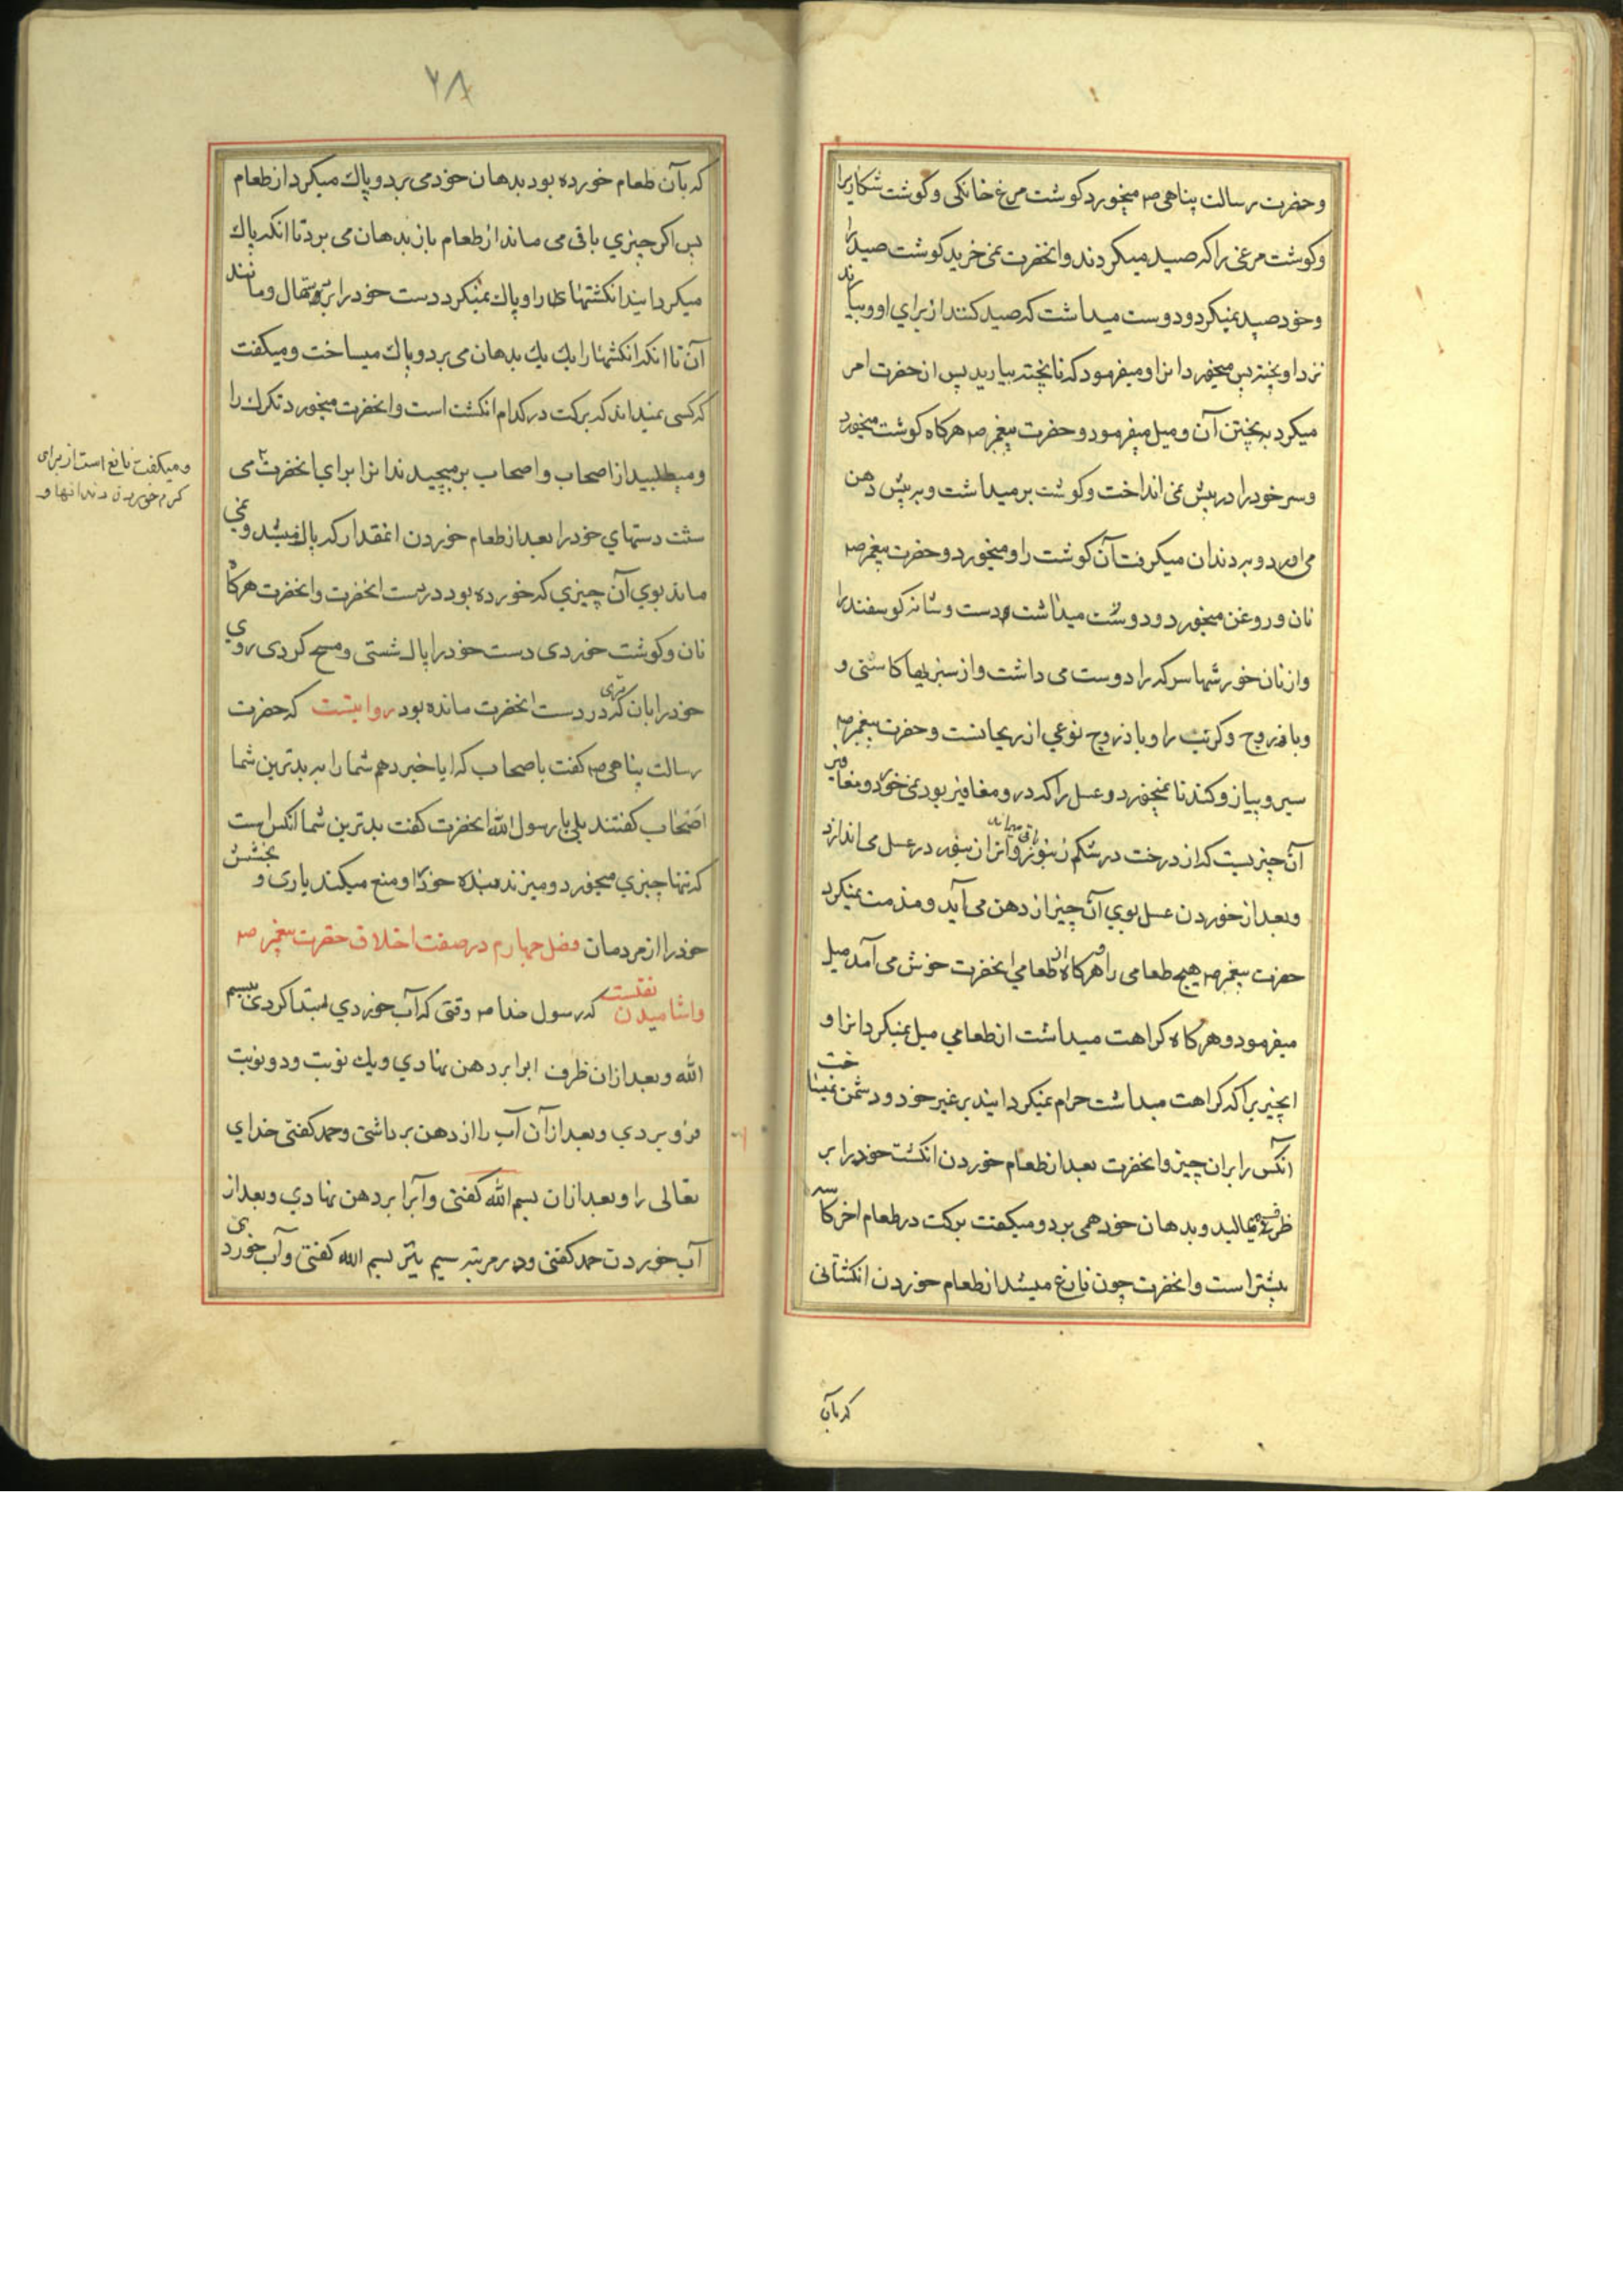 و حضرت رسالت پناهی صم میخورد کوشت مرغ خانکی و کوشت شکاریرا
و کوشت مرغی را که صید میکردند و انحضرت نمی خرید کوشت صید را
و خود صید نمیکرد و دوست میداشت که صید کنند از برای او و بیارند
نزد او پخته پس میخورد انرا و میفرمود که ناپخته بیارید پس انحضرت امر
میکرد به پختن آن و میل میفرمود و حضرت پیغمبر صم هرکاه کوشت میخورد
و سر خود را در پیش نمی انداخت و کوشت بر میداشت و به پیش دهن
می آورد و به دندان میکرفت آن کوشت را و میخورد و حضرت پیغمبر صم
نان و روغن میخورد و دوست میداشت دست و شانه کوسفند را
و از نان خورشها سرکه را دوست می داشت و از سبزیها کاسنی و
و باذروج و کرنب را و باذروج نوعی از ریحانست و حضرت پیغمبر صم
سیر و پیاز و کندنا نمیخورد و عسل را که در و مغافیر بود نمی خورد و مغافیر
آن چیزیست که از درخت در شکم زنبور باقی میماند و انرا زنبور در عسل می اندازد
و بعد از خوردن عسل بوی آن چیز از دهن می آید و مذمت نمیکرد
حضرت پیغمبر صم هیچ طعامی را و هرکاه از طعامی انحضرت خوش می آمد میل
میفرمود و هرکاه کراهت میداشت از طعامی میل نمیکرد انرا و
انچیزیرا که کراهت میداشت حرام نمیکردانید بر غیر خود و دشمن نمیساخت
انکس را بران چیز و انحضرت بعد از طعام خوردن انکشت خود را بر
ظرف میمالید و بدهان خود همی برد و میکفت برکت در طعام اخر کاسه
بیشتر است و انحضرت چون فارغ میشد از طعام خوردن انکشتانی
که بآن
۲۸
که بآن طعام خورده بود بدهان خود می برد و پاک میکرد از طعام
پس اکر چیزی باقی می ماند از طعام باز بدهان می برد تا انکه پاک
میکردانید انکشتهای را و پاک نمیکرد دست خود را به دستمال و مانند
آن تا انکه انکشتها را یک یک بدهان می برد و پاک میساخت و میکفت
که کسی نمیداند که برکت در کدام انکشت است و انحضرت میخورد تکرک را
و میطلبید از اصحاب و اصحاب بر میچیدند انرا برای انحضرت می
و میکفت نافع است از برای
کرم خوردن دندانها و
شست دستهای خود را بعد از طعام خوردن انمقدار که پاک میشد و نمی
ماند بوی آن چیزی که خورده بود در دست انحضرت و انحضرت هرکاه
نان و کوشت خوردی دست خود را پاک شستی و مسح کردی روی
خود را بان تری که در دست انحضرت مانده بود روایتست که حضرت
رسالت پناهی صم کفت باصحاب که ایا خبر دهم شما را به بدترین شما
اصحاب کفتند بلی یا رسول الله انحضرت کفت بدترین شما انکس است
که تنها چیزی میخورد و میزند بنده خود را و منع میکند یاری و بخشش
خود را از مردمان فصل چهارم در صفت اخلاق حضرت پیغمبر صم
واشامیدن نقلست که رسول خدا صم وقتی که آب خوردی ابتدا کردی ببسم
الله و بعد از ان ظرف ابرا بر دهن نهادی و یک نوبت و دو نوبت
فرو بردی و بعد از آن آب را از دهن برداشتی و حمد کفتی خدای
تعالی را و بعد از ان بسم الله کفتی و آبرا بر دهن نهادی و بعد از
آب خوردن حمد کفتی و در مرتبه سیم نیز بسم الله کفتی و آب خوردی